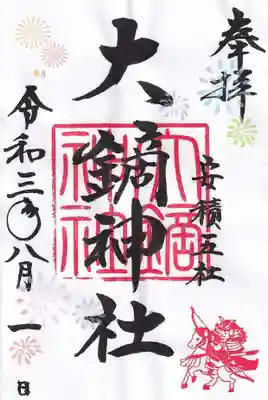 奉拝
安積五社
大鏑神社
大鏑
神社
令和三年八月一日